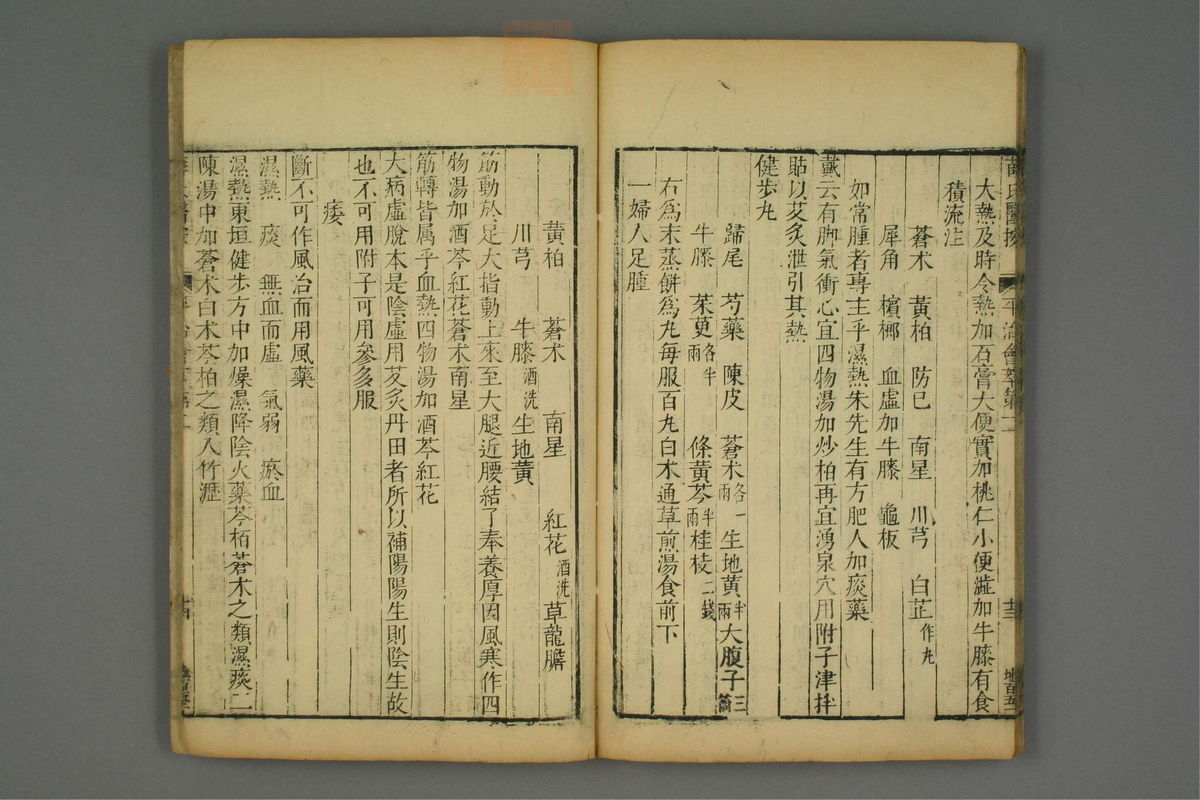 薛氏醫按 平治會萃卷二 十三 地百五一
大熱及時令熱加石膏大便實加桃仁小便澁加牛膝有食
積流注
蒼术 黃柏 防巳 南星 川芎 白芷 作丸
犀角 檳榔 血虛加牛膝 龜板
如常腫者專主乎濕熱朱先生有方肥人加痰藥
戴云有脚氣衝心宜四物湯加炒柏再宜湧泉穴用附子津拌
貼以艾灸泄引其熱
健步丸
歸尾 芍藥 陳皮 蒼术各一兩 生地黃半兩 大腹子三箇
牛膝 茱萸各半兩 條黃芩半兩 桂枝二錢
右爲末蒸餅爲丸每服百丸白术通草煎湯食前下
一婦人足腫
黃柏 蒼术 南星 紅花酒洗 草龍膽
川芎 牛膝酒洗 生地黃
筋動於足大指動上來至大腿近腰結了奉養厚因風寒作四
物湯加酒芩紅花蒼术南星
筋轉皆属乎血熱四物湯加酒芩紅花
大病虛脫本是陰虛用艾灸丹田者所以補陽陽生則陰生故
也不可用附子可用參多服
痿
斷不可作風治而用風藥
濕熱 痰 無血而虛 氣弱 瘀血
濕熱東垣健步方中加燥濕降陰火藥芩栢蒼术之類濕痰二
陳湯中加蒼术白术芩柏之類入竹瀝
十四